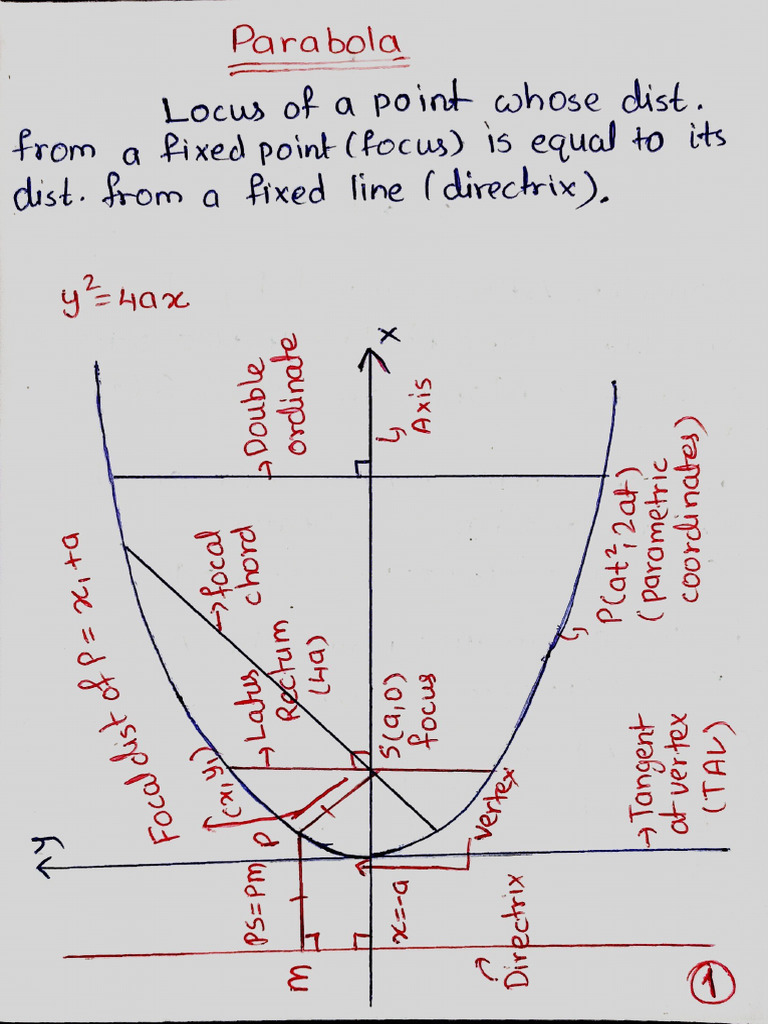 Parabola
Locus of a point whose dist.
from a fixed point (focus) is equal to its
dist. from a fixed line (directrix).
y²=4ax
x
Axis
Double
ordinate
focal
chord
P(at², 2at)
(parametric
coordinates)
Focal dist of P = x₁+a
Latus
Rectum
(4a)
S(a,0)
focus
(x₁ y₁)
P
vertex
Tangent
at vertex
(TAV)
y
PS=PM
x=-a
M
Directrix
1